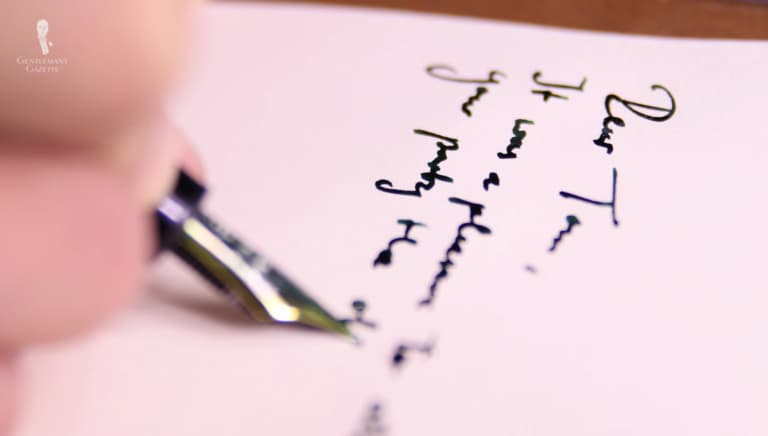 GENTLEMAN'S
GAZETTE
Dear Tom,
It was a pleasure to
party the